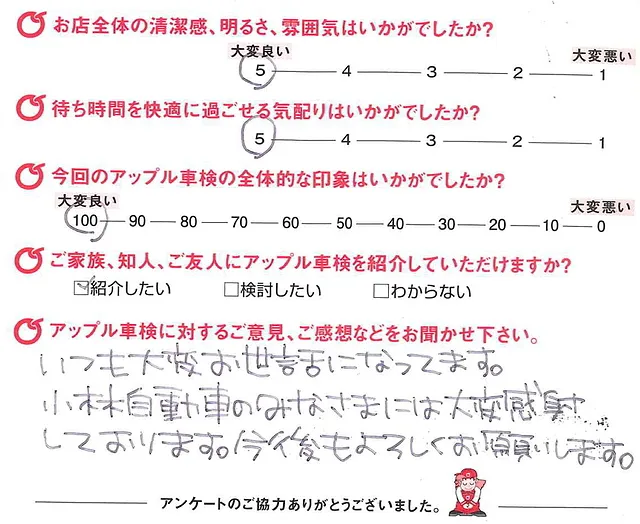 お店全体の清潔感、明るさ、雰囲気はいかがでしたか?
大変良い 大変悪い
5 4 3 2 1
待ち時間を快適に過ごせる気配りはいかがでしたか?
5 4 3 2 1
今回のアップル車検の全体的な印象はいかがでしたか?
大変良い 大変悪い
100 90 80 70 60 50 40 30 20 10 0
ご家族、知人、ご友人にアップル車検を紹介していただけますか?
☑紹介したい □検討したい □わからない
アップル車検に対するご意見、ご感想などをお聞かせ下さい。
いつも大変お世話になってます。
小林自動車のみなさまには大変感射
しております。今後もよろしくお願いします。
アンケートのご協力ありがとうございました。